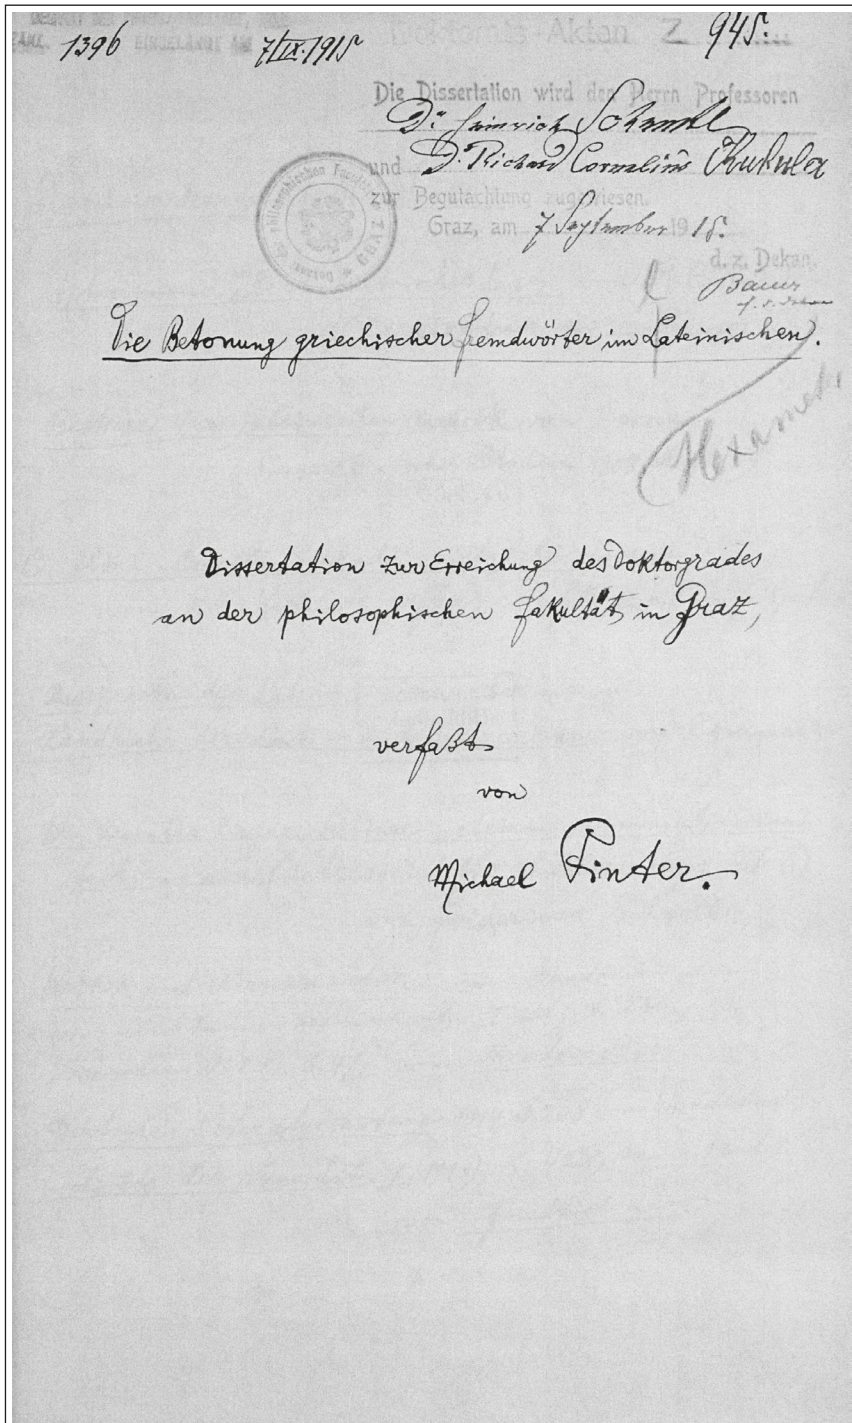 1396 EINGELANGT AM 7/IX.1915
Doktorats-Akten Z. 945.
Die Dissertation wird den Herrn Professoren
Dr. Heinrich Schenkl
und Dr. Richard Cornelius Kukula
zur Begutachtung zugewiesen.
Graz, am 7 September 1915.
d. z. Dekan.
Bauer
Die Betonung griechischer Fremdwörter im Lateinischen.
Hexameter
Dissertation zur Erreichung des Doktorgrades
an der philosophischen Fakultät in Graz,
verfaßt
von
Michael Pinter.